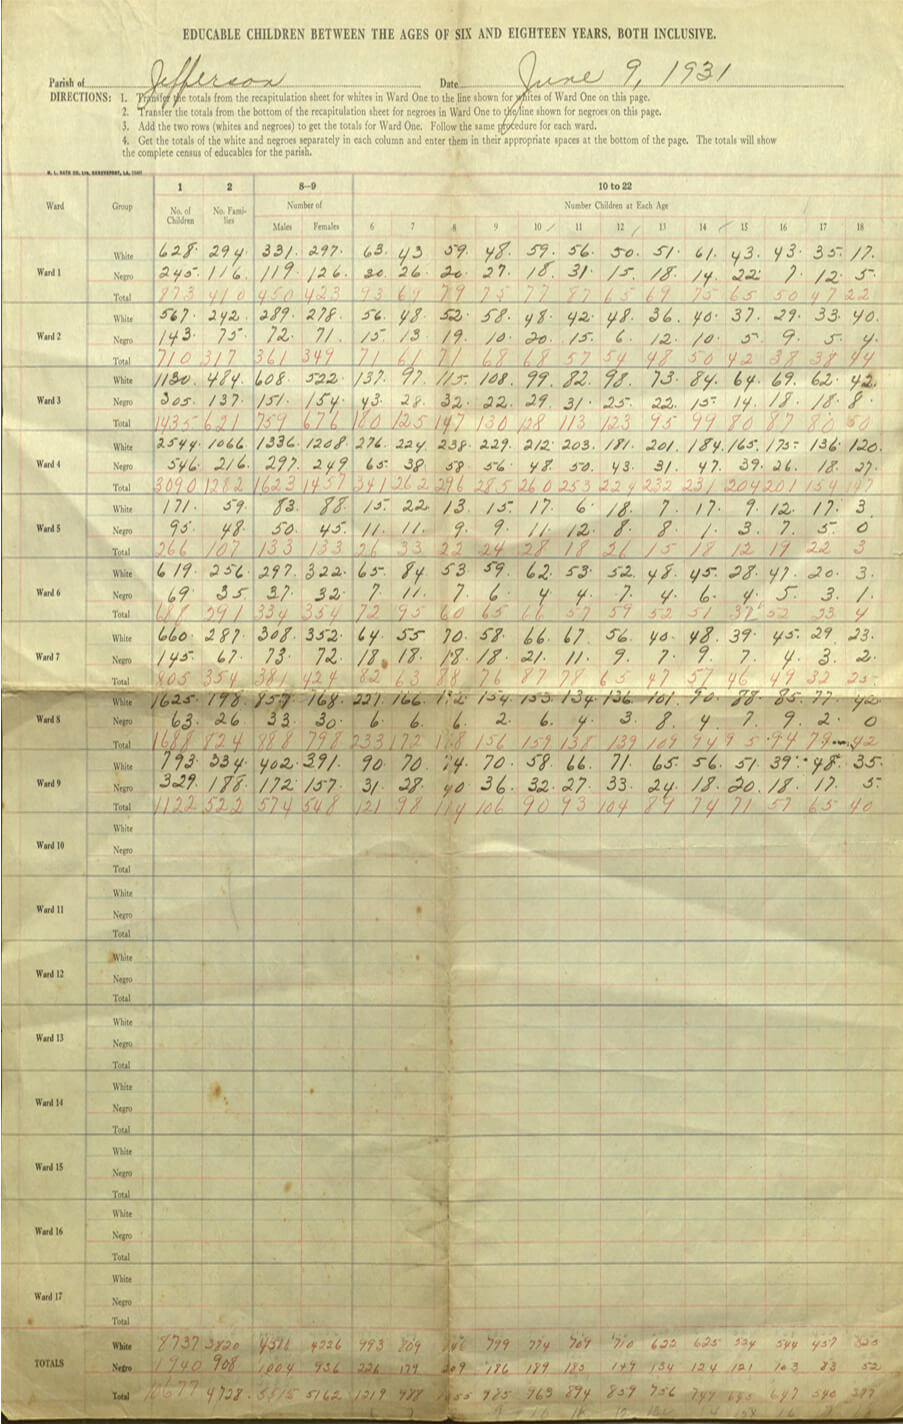 EDUCABLE CHILDREN BETWEEN THE AGES OF SIX AND EIGHTEEN YEARS, BOTH INCLUSIVE.
Parish of Jefferson Date June 9, 1931
DIRECTIONS: 1. Transfer the totals from the recapitulation sheet for whites in Ward One to the line shown for whites of Ward One on this page.
2. Transfer the totals from the bottom of the recapitulation sheet for negroes in Ward One to the line shown for negroes on this page.
3. Add the two rows (whites and negroes) to get the totals for Ward One. Follow the same procedure for each ward.
4. Get the totals of the white and negroes separately in each column and enter them in their appropriate spaces at the bottom of the page. The totals will show
the complete census of educables for the parish.
1 2 8—9 10 to 22
Ward Group No. of Children No. Families Number of Number Children at Each Age
Males Females 6 7 8 9 10 11 12 13 14 15 16 17 18
Ward 1
White 628 294 331 297 63 43 59 48 59 56 50 51 61 43 43 35 17
Negro 245 116 119 126 30 26 20 27 18 31 15 18 14 22 7 12 5
Total 873 410 450 423 93 69 79 75 77 87 65 69 75 65 50 47 22
Ward 2
White 567 242 289 278 56 48 52 58 48 42 48 36 40 37 29 33 40
Negro 143 75 72 71 15 13 19 10 20 15 6 12 10 5 9 5 4
Total 710 317 361 349 71 61 71 68 68 57 54 48 50 42 38 38 44
Ward 3
White 1130 484 608 522 137 97 115 108 99 82 98 73 84 64 69 62 42
Negro 305 137 151 154 43 28 32 22 29 31 25 22 15 14 18 18 8
Total 1435 621 759 676 180 125 147 130 128 113 123 95 99 80 87 80 50
Ward 4
White 2544 1066 1336 1208 276 224 238 229 212 203 181 201 184 165 175 136 120
Negro 546 216 297 249 65 38 58 56 48 50 43 31 47 39 26 18 27
Total 3090 1282 1623 1457 341 262 296 285 260 253 224 232 231 204 201 154 147
Ward 5
White 171 59 83 88 15 22 13 15 17 6 18 7 17 9 12 17 3
Negro 95 48 50 45 11 11 9 9 11 12 8 8 1 3 7 5 0
Total 266 107 133 133 26 33 22 24 28 18 26 15 18 12 19 22 3
Ward 6
White 619 256 297 322 65 84 53 59 62 53 52 48 45 28 47 20 3
Negro 69 35 37 32 7 11 7 6 4 4 7 4 6 4 5 3 1
Total 688 291 334 354 72 95 60 65 66 57 59 52 51 32 52 23 4
Ward 7
White 660 287 308 352 64 55 70 58 66 67 56 40 48 39 45 29 23
Negro 145 67 73 72 18 18 18 18 21 11 9 7 9 7 4 3 2
Total 805 354 381 424 82 63 88 76 87 78 65 47 57 46 49 32 25
Ward 8
White 1625 198 857 768 227 166 154 153 134 136 101 90 88 85 77 42
Negro 63 26 33 30 6 6 6 2 6 4 3 8 4 7 9 2 0
Total 1688 824 888 798 233 172 156 159 138 139 109 94 95 94 79 42
Ward 9
White 793 334 402 391 90 70 74 70 58 66 71 65 56 51 39 48 35
Negro 329 188 172 157 31 28 40 36 32 27 33 24 18 20 18 17 5
Total 1122 522 574 548 121 98 114 106 90 93 104 89 74 71 57 65 40
Ward 10
White
Negro
Total
Ward 11
White
Negro
Total
Ward 12
White
Negro
Total
Ward 13
White
Negro
Total
Ward 14
White
Negro
Total
Ward 15
White
Negro
Total
Ward 16
White
Negro
Total
Ward 17
White
Negro
Total
TOTALS
White 8737 3820 993 809 799 774 709 710 622 625 524 544 457
Negro 1940 908 1004 936 226 179 209 186 189 185 149 134 124 121 103 83 52
Total 10677 4728 5515 5162 1219 988 985 963 894 859 756 749 645 647 540